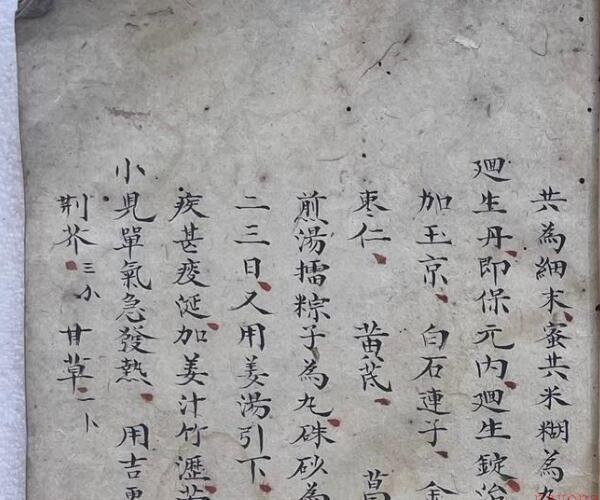 共為細末蜜共米糊為丸
廻生丹即保元内廻生錠治
加玉京 白石連子 金
枣仁 黄茋
煎湯擂粽子為丸硃砂為
二三日又用姜湯引下
疾甚痰涎加姜汁竹瀝
小児單氣急發熱 用吉
荆芥 三小 甘草 二卜